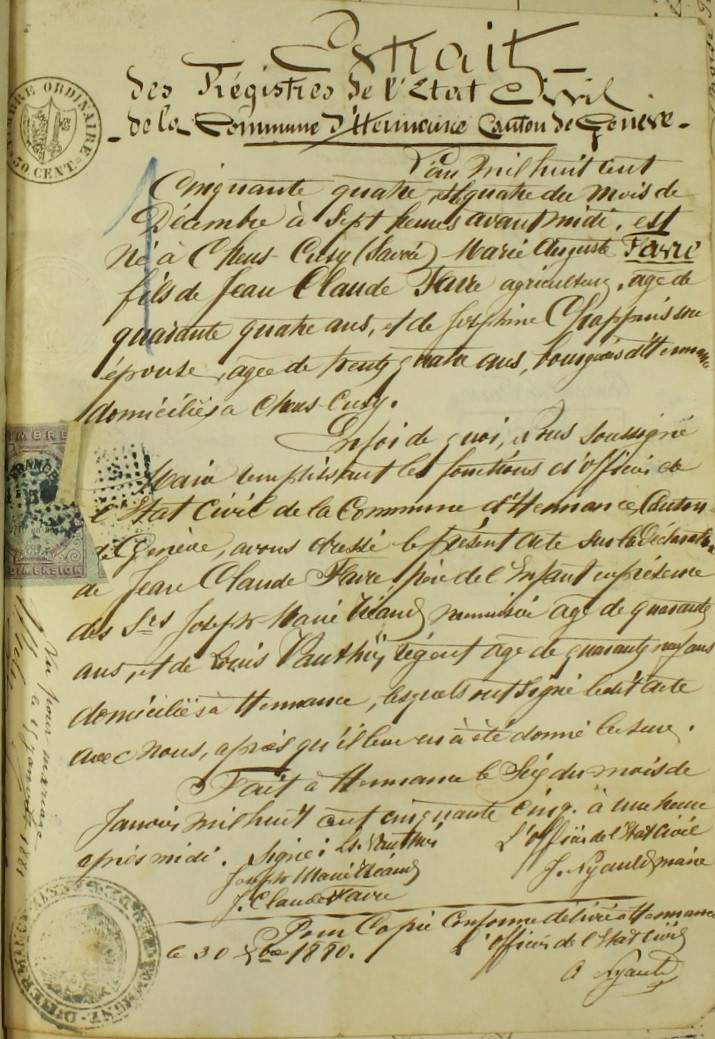 Extrait
des Régistres de l'Etat Civil
de la Commune d'Hermance Canton de Genève.
TIMBRE ORDINAIRE
50 CENT.
L'an mil huit cent
Cinquante quatre, le quatre du mois de
Décembre à Sept heures avant midi, est
né à Chens-Cusy (Savoie) Marie Auguste Favre
fils de Jean Claude Favre agriculteur, agé de
quarante quatre ans, et de Joséphine Chappuis son
épouse, agée de trente quatre ans, bourgeois d'Hermance
domiciliés à Chens-Cusy.
En foi de quoi, Nous soussigné
Maire remplissant les fonctions d'officier de
l'Etat Civil de la Commune d'Hermance, Canton
de Genève, avons dressé le présent acte sur la Déclaration
de Jean Claude Favre père de l'Enfant en présence
des Srs Joseph-Marie agé de quarante
ans, et de Louis Vauthey, Régent agé de quarante ans
domiciliés à Hermance, lesquels ont signé le dit acte
avec nous, après qu'il leur en à été donné lecture.
Fait à Hermance le Six du mois de
Janvier mil huit cent cinquante cinq. à une heure
après midi. Signé: Ls Vauthey L'officier de l'Etat Civil
Joseph Marie J. Nyauld maire
J. Claude Favre
Pour Copie Conforme délivrée à Hermance
le 30 Xbre 1880. L'officier de l'Etat Civil
Nyauld
TIMBRE
DIMENSION
Vu pour mariage
Janvier 1881